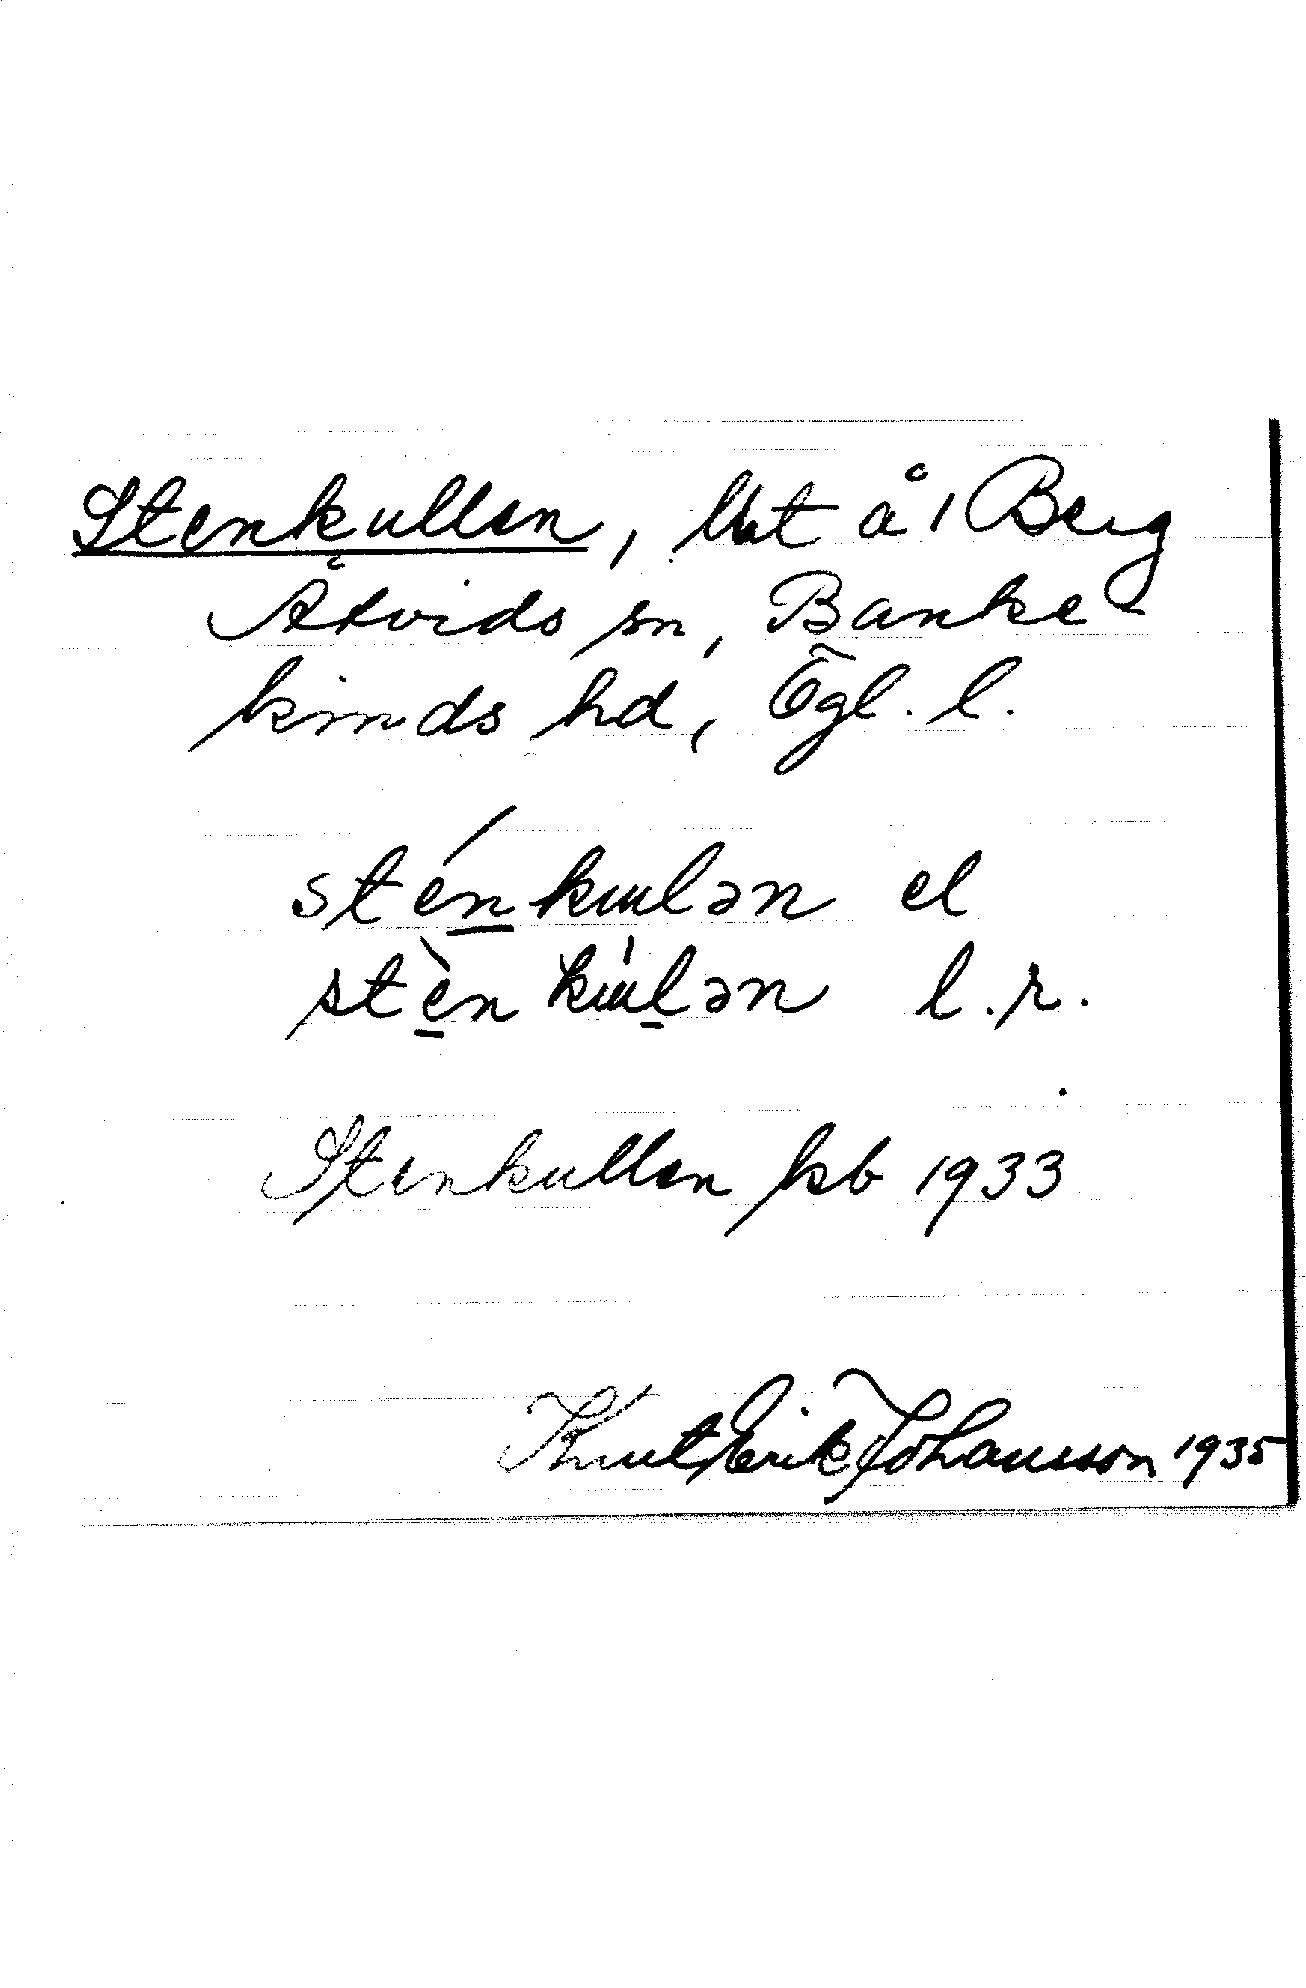 Stenkullen, lht å 1 Berg
Åtvids sn, Banke-
kinds hd, Ögl. l.
sténkulən el
stènkulən l.r.
Stenkullen kb 1933
Knut Erik Johansson 1935